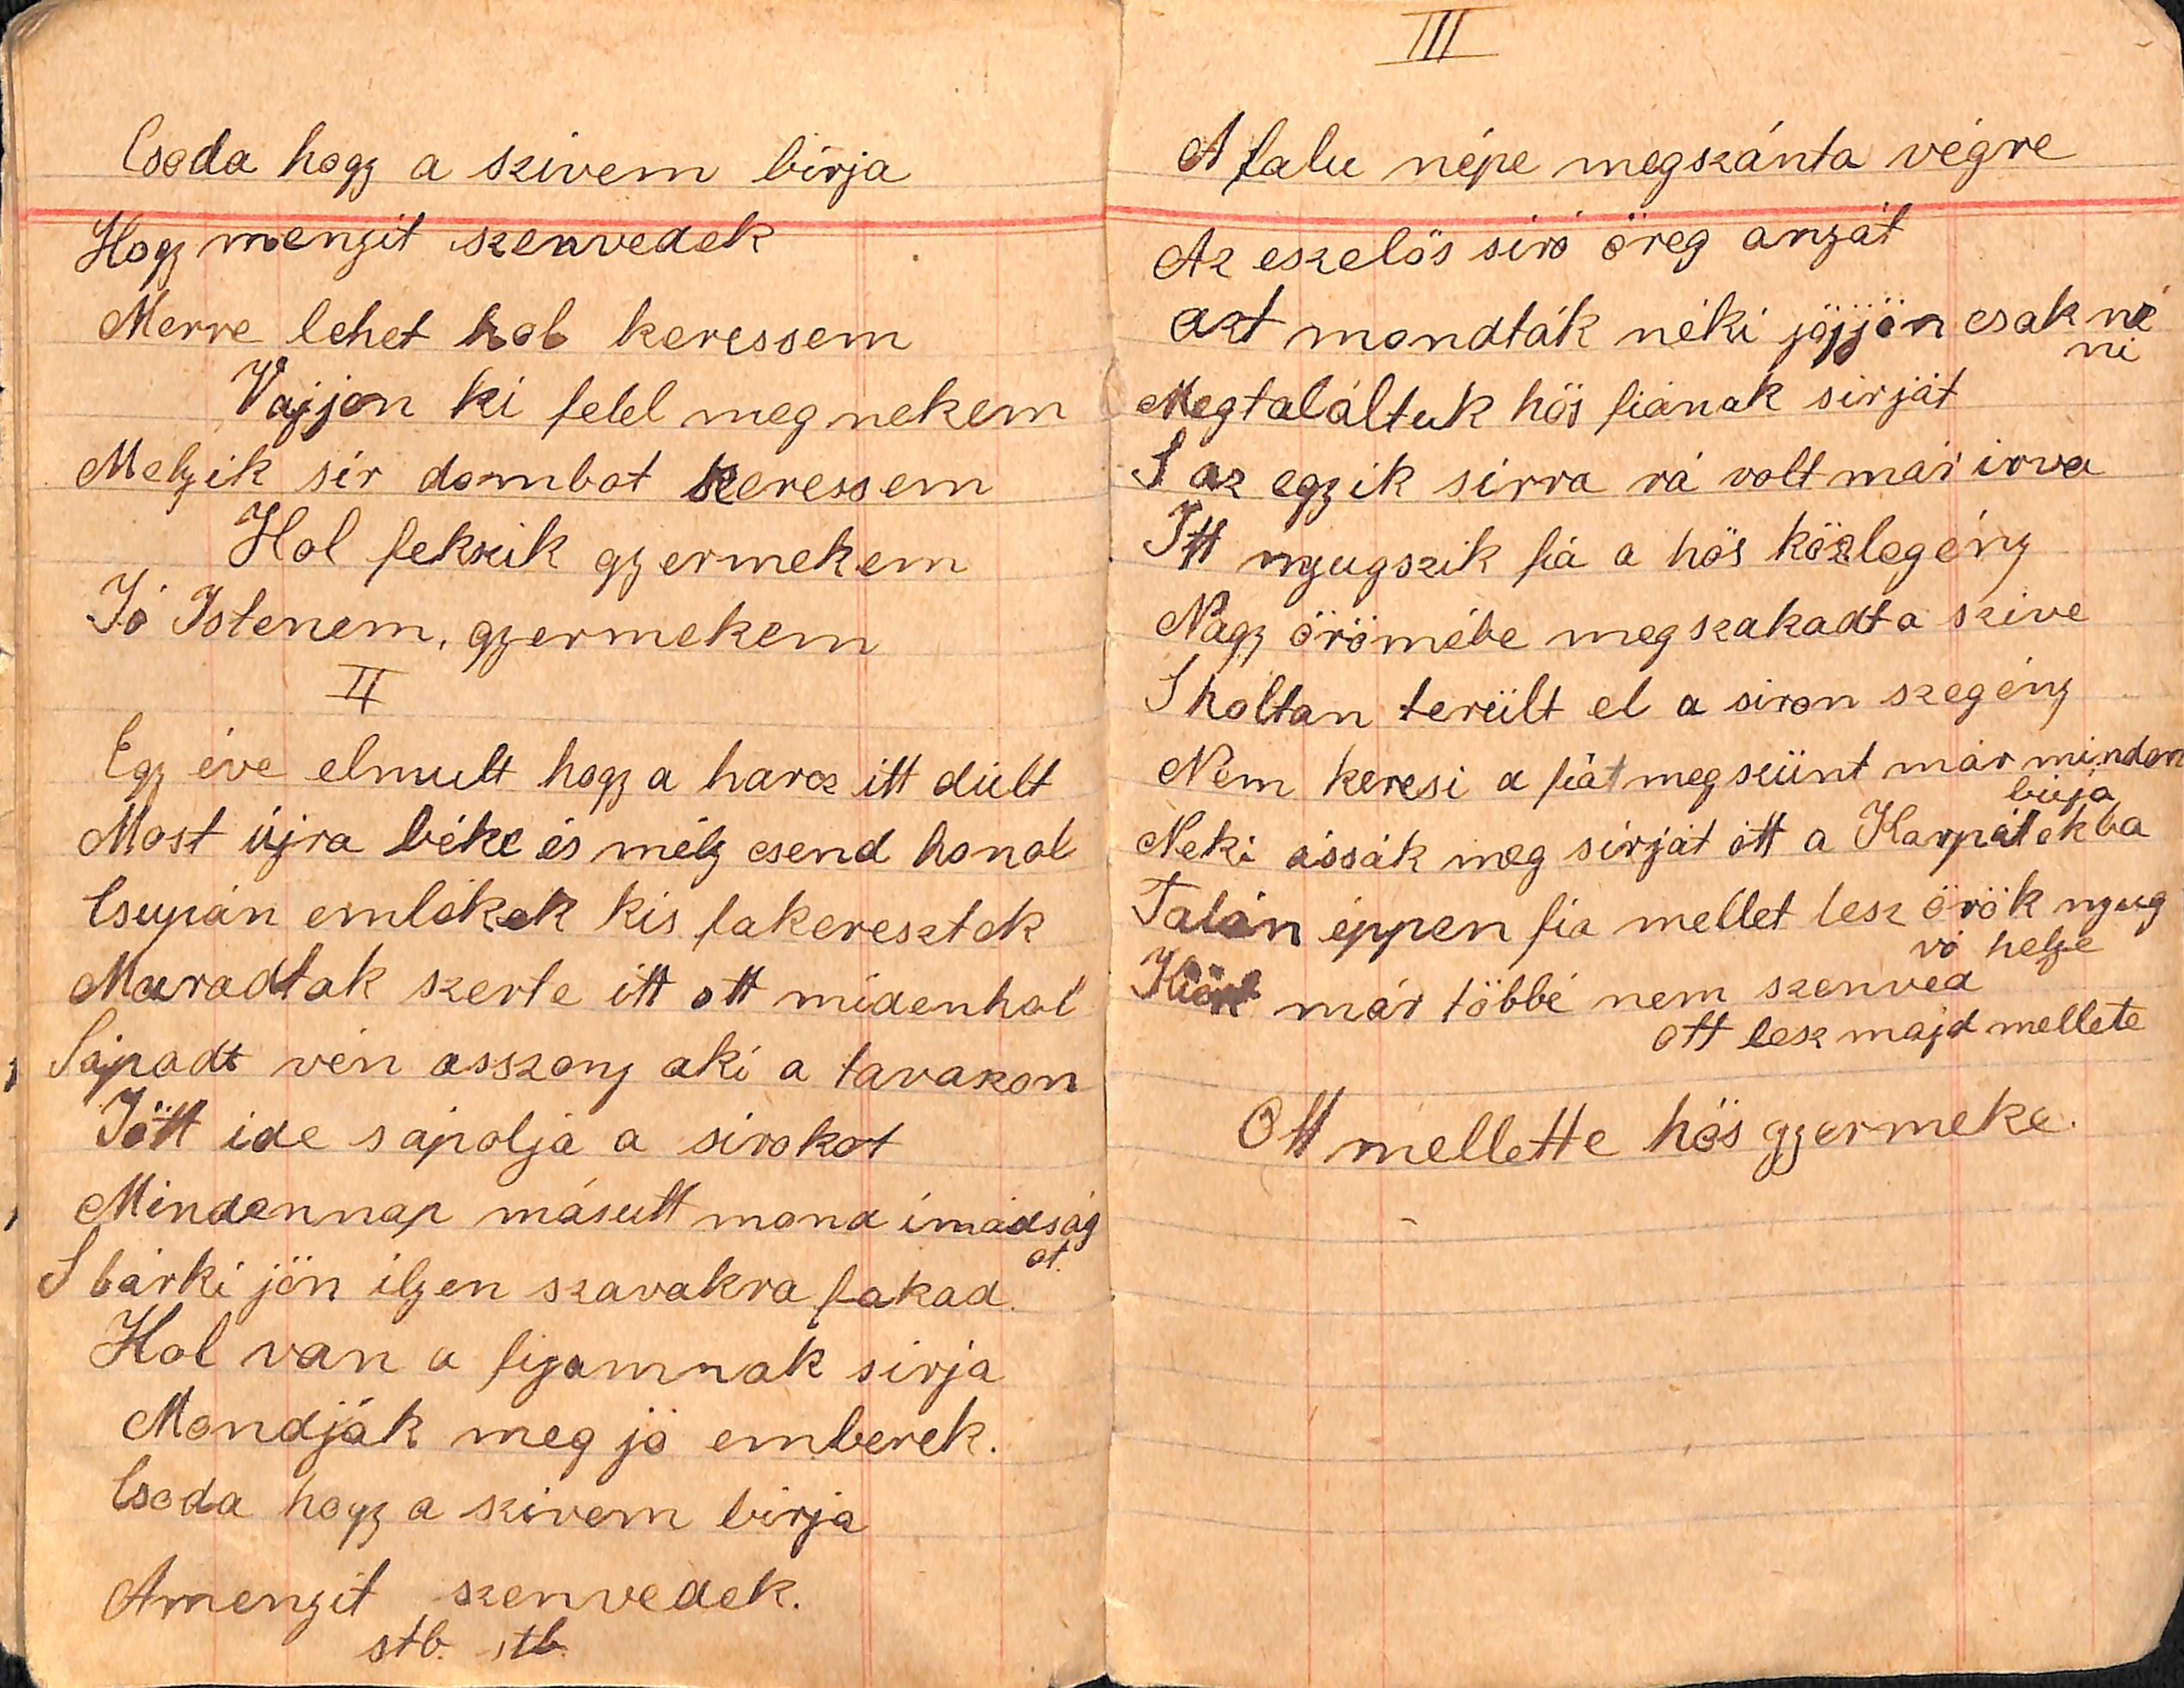 Csoda hogy a szivem birja
Hogy mengit szenvedek
Merre lehet hol keressem
Vajjon ki felel meg nekem
Melyik sír dombot keressem
Hol fekszik gyermekem
Jó Istenem, gyermekem
II
Egy éve elmult hogy a harcz itt dúlt
Most újra béke és mély csend honol
Csupán emlékek kis fakeresztek
Maradtak szerte itt ott midenhol
Sápadt vén asszony aki a tavaszon
Jött ide sápolja a sirokat
Mindennap másutt mond imádság
ot.
S bárki jön ilyen szavakra fakad.
Hol van a fijamnak sirja
Mondják meg jó emberek.
Csoda hogy a szivem birja
Amengit szenvedek.
stb. stb.
III
A falu népe megszánta végre
Az eszelős síró öreg anyát
azt mondták néki jöjjön csak né
ni
Megtaláltuk hős fiának sirját
S az egyik sirra rá volt már irva
Itt nyugszik fiá a hős közlegény
Nagy örömébe megszakadt a szive
S holtan terült el a siron szegény
Nem keresi a fiát megszünt már minden
búja
Neki ássák meg sírját ott a Kárpátokba
Talán éppen fia mellet lesz örök nyug
vó helye
már többé nem szenved
ott lesz majd mellete
Ott mellette hős gyermeke.